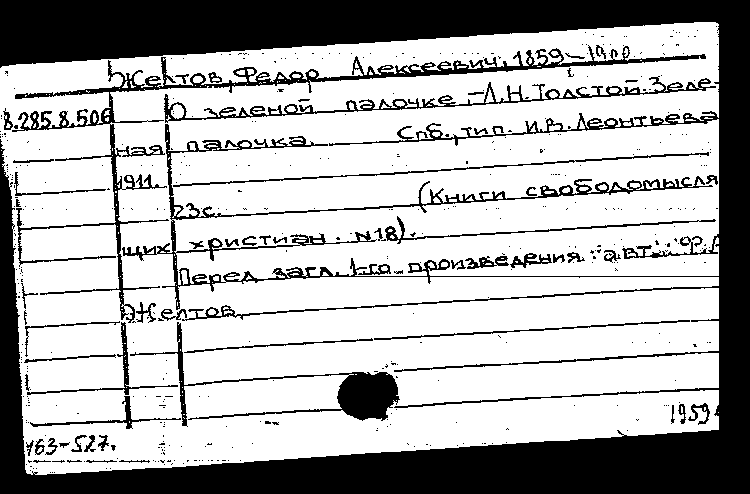 Желтов, Федор Алексеевич, 1859-1900
8.285.8.506 О зеленой палочке, -Л.Н.Толстой. Зеле-
ная палочка. Спб., тип. И.В.Леонтьева
1911.
23с. (Книги свободомысля
щих христиан. N18).
Перед загл. 1-го произведения: авт.: Ф.А
Желтов.
1959
163-527.